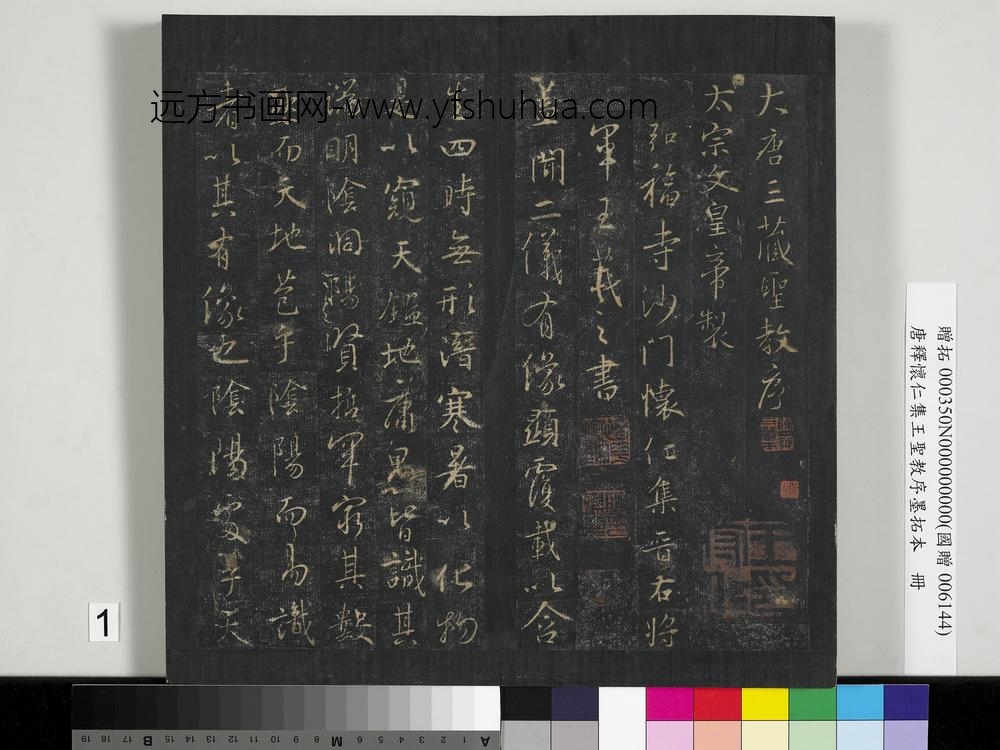 大唐三蔵聖教序
太宗文皇帝製
弘福寺沙門懷仁集晋右将
軍王羲之書
蓋聞二儀有像顯覆載以含
生四時無形潛寒暑以化物
是以窺天鑑地庸愚皆識其
端明陰洞陽賢哲罕窮其數
然而天地苞乎陰陽而易識
者以其有像也陰陽處乎天
远方书画网-www.yfshuhua.com
贈拓 000350N000000000(國贈 006144)
唐釋懷仁集王聖教序墨拓本 冊
1
19 18 17 16 15 14 13 12 11 10 9 8 7 6 5 4 3 2 1
B M A